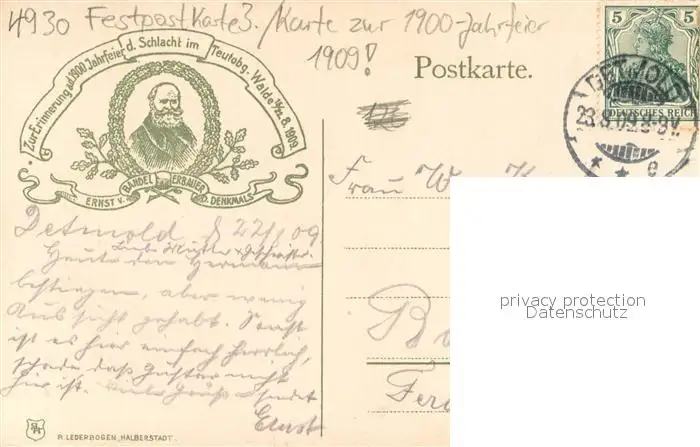 4930 Festpostkarte z. /Karte zur 1900-Jahrfeier
1909!
Zur Erinnerung a.d. 1900 Jahrfeier d. Schlacht im Teutobg. Walde 14/22.8.1909.
ERNST V. BANDEL ERBAUER D. DENKMALS
Postkarte.
5 5
DEUTSCHES REICH
DETMOLD
23.8.09.8-9V.
* * e
Frau W. K
Detmold d 22/8 09.
Liebe Mutter & Geschwister.
Heute den Hermann
bestiegen, aber wenig
Aussicht gehabt. Sonst
ist es hier einfach herrlich,
schade daß Gustav nicht
hier ist. Viele Grüße sendet
Ernst
privacy protection
Datenschutz
R. LEDERBOGEN, „HALBERSTADT".